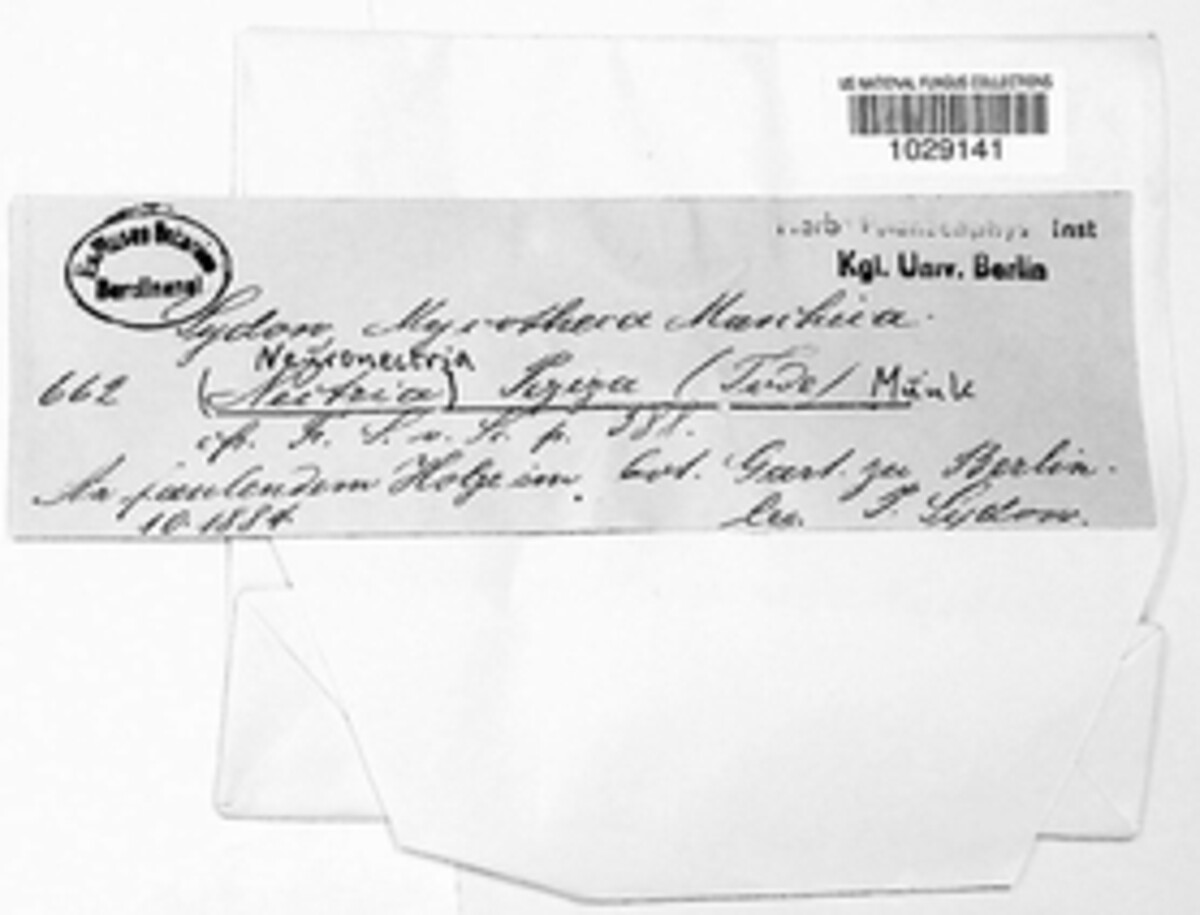 US NATIONAL FUNGUS COLLECTIONS
1029141
Ex Museo Botanico
Berolinensi
Herb. Pflanzenphys. Inst
Kgl. Univ. Berlin
Sydow, Mycotheca Marchica.
Neuronectria
662 (Nectria) Peziza (Tode) Munk
cfr. Fr. S. v. S. p. 388.
An faulendem Holze im bot. Gart. zu Berlin.
10.1884. leg. P. Sydow.